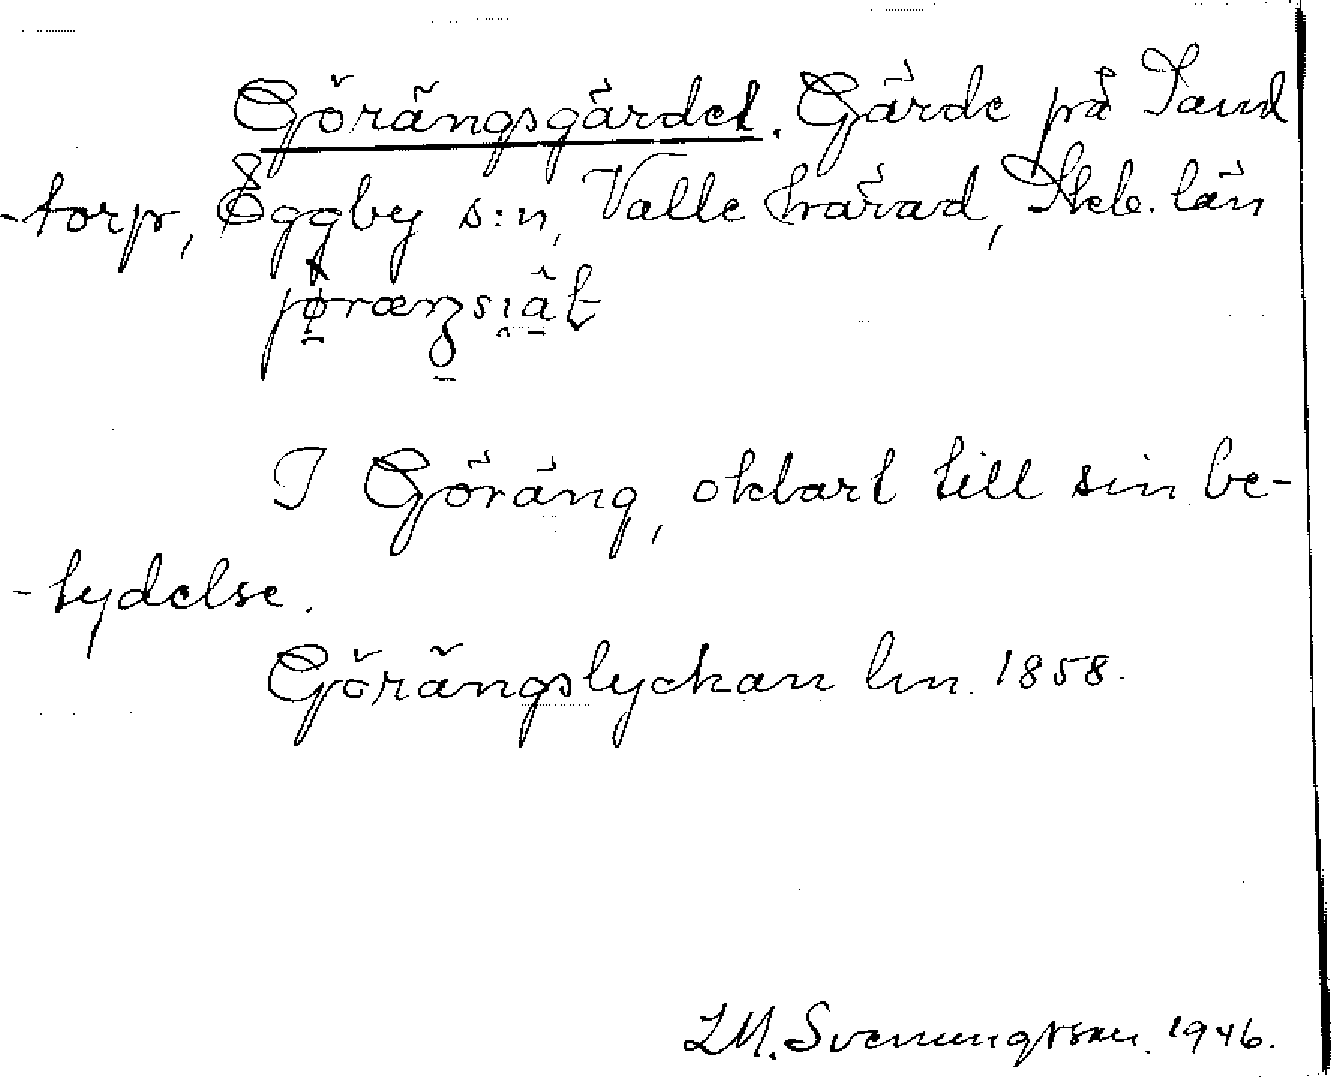 Görängsgärdet. Gärde på Sand
-torp, Eggby s:n, Valle härad, Skb. län
I Göräng, oklart till sin be-
-tydelse.
Görängslyckan lm. 1858.
LM. Svenungsson. 1946.